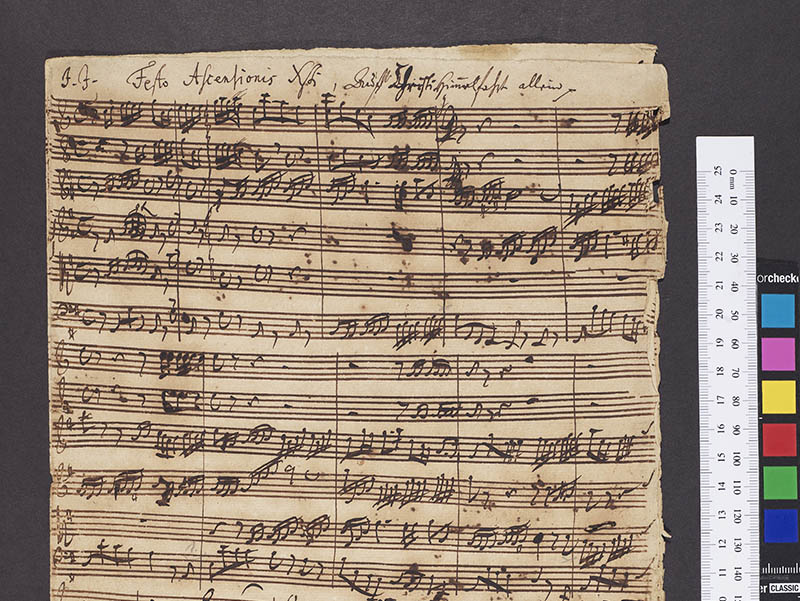 J. J. Festo Ascensionis Xsti, Auff Christi Himmelfahrt allein
orchecke
0 mm 10 20 30 40 50 60 70 80 90 100 110 120 130 140
25 24 23 22 21 20 19 18 17 16 15 14 13 12 11
CLASSIC